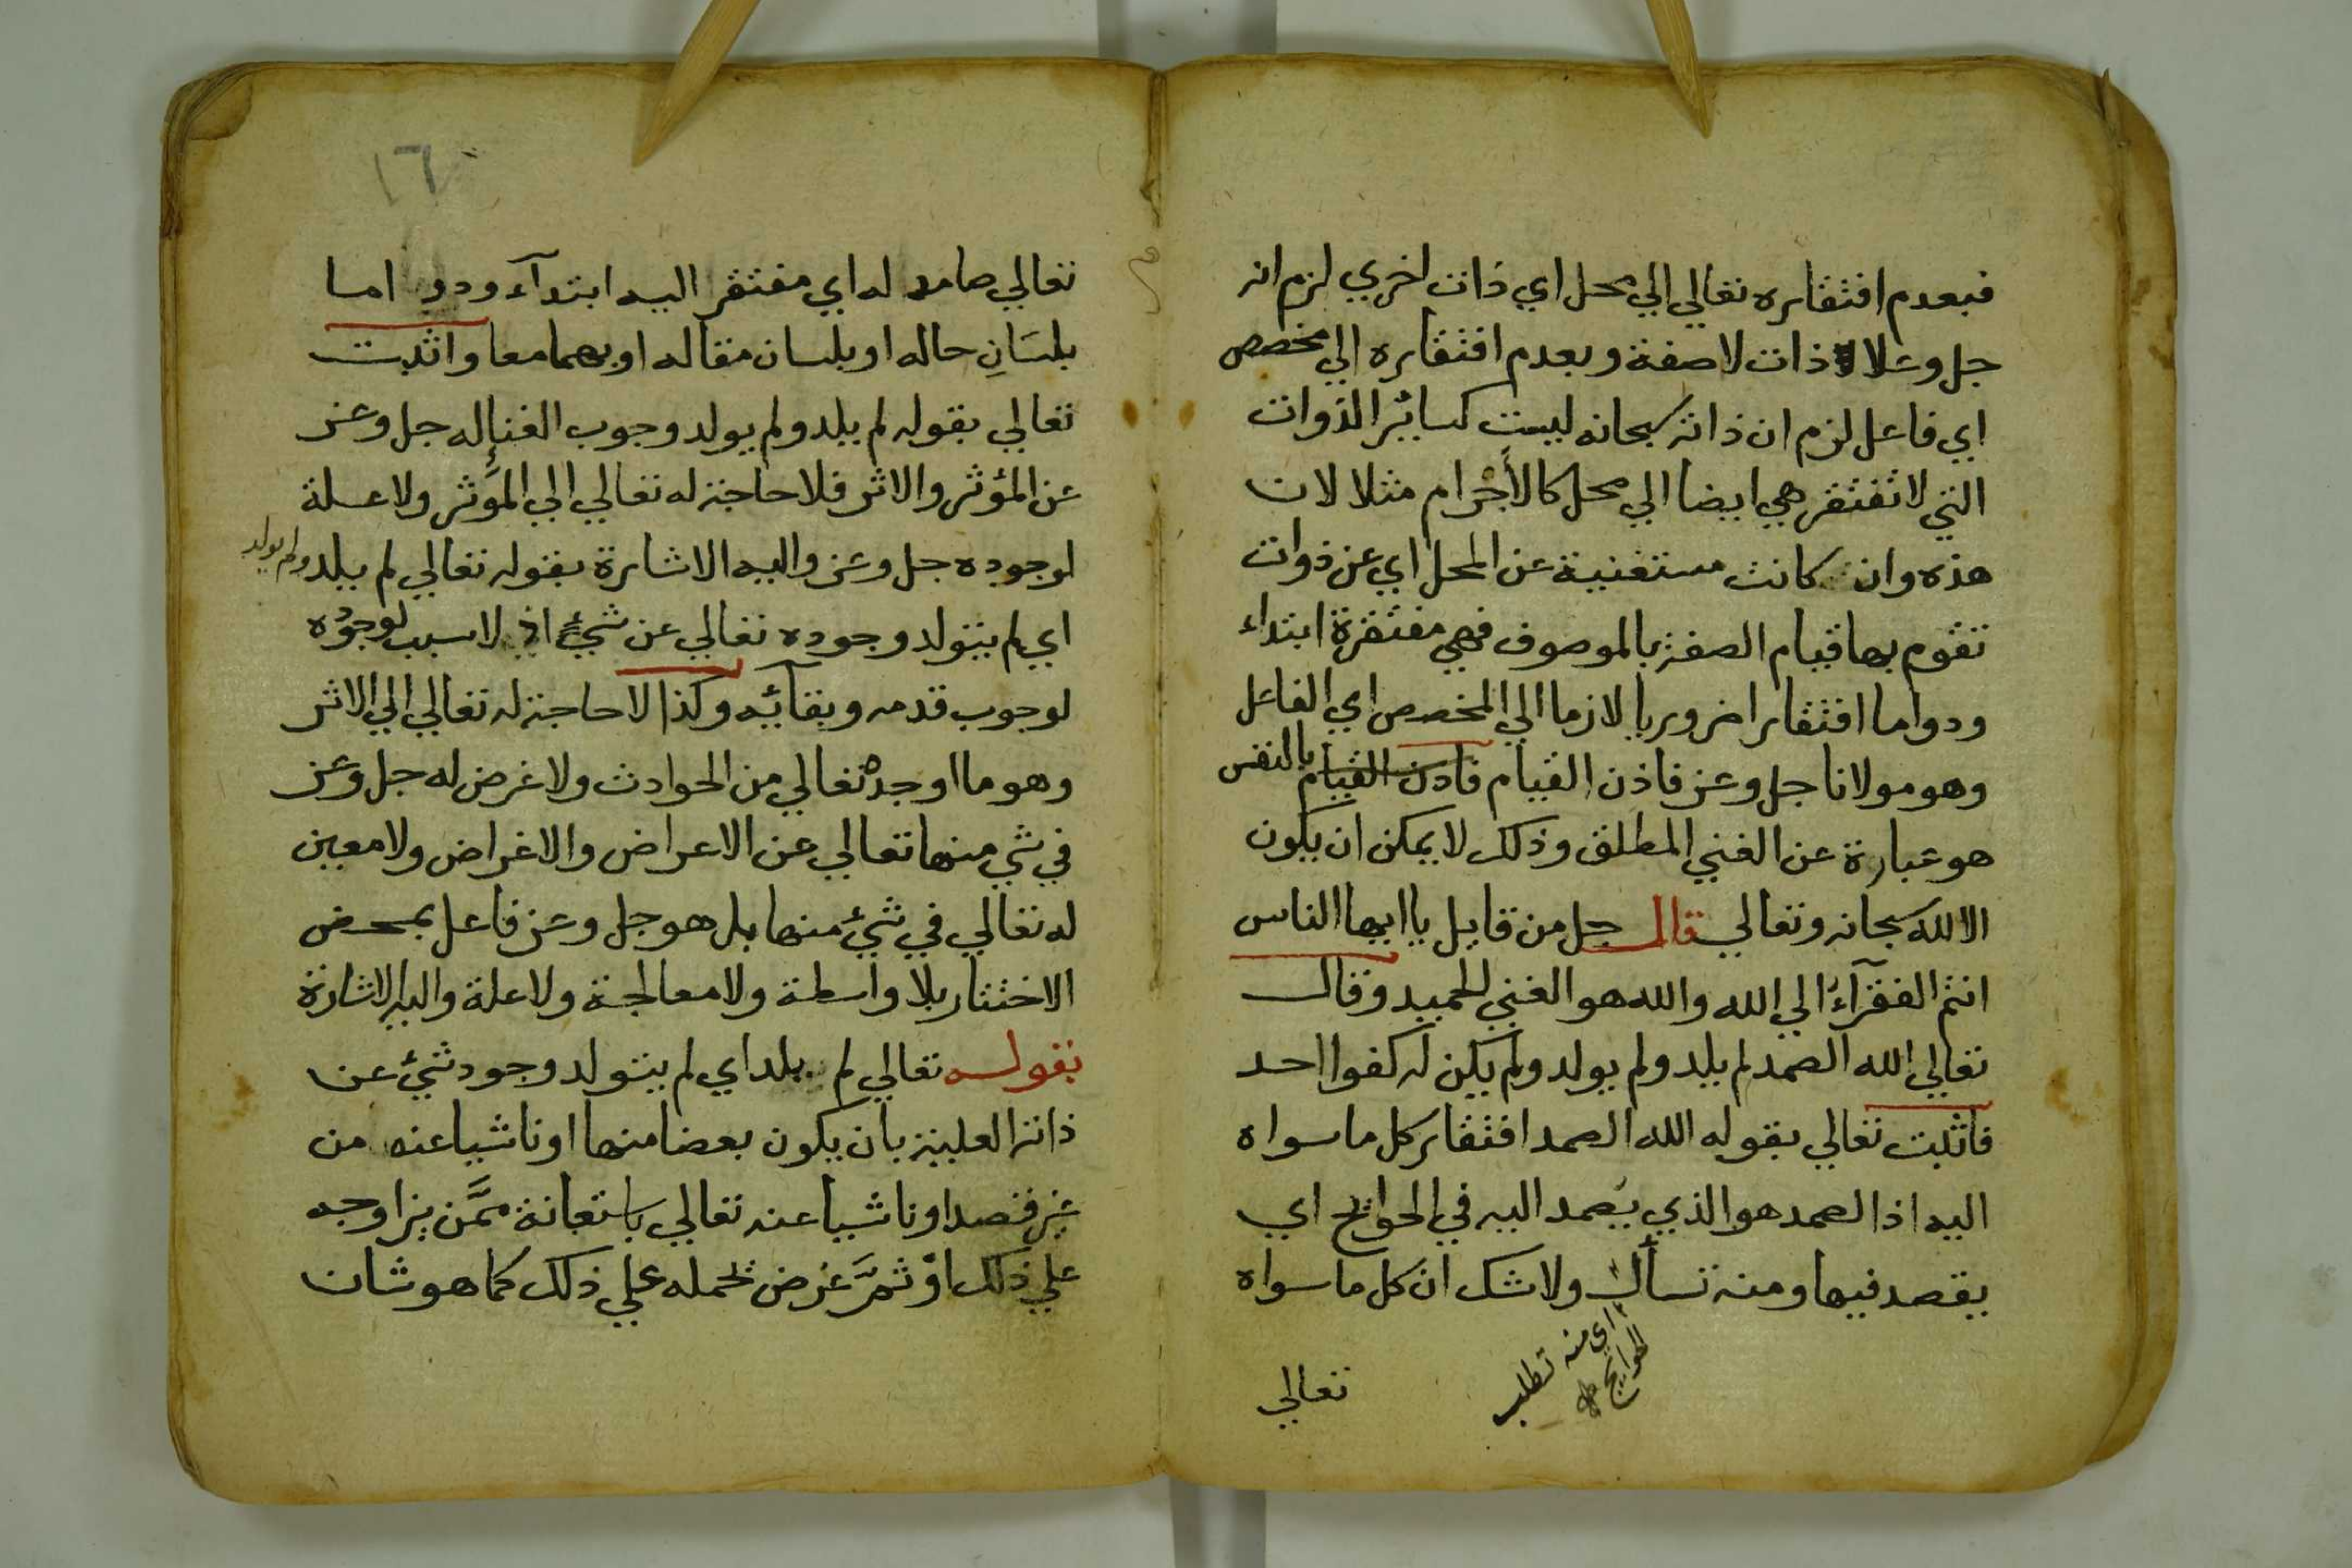 فبعدم افتقاره تعالي الي محل اي ذات اخري لزم انه
جل وعلا ذات لا صفة وبعدم افتقاره الي مخصص
اي فاعل لزم ان ذاته سبحانه ليست كسائر الذوات
التي لا تفتقر هي ايضا الي محل كالأجْرام مثلا لان
هذه وان كانت مستغنية عن المحل اي عن ذوات
تقوم بها قيام الصفة بالموصوف فهي مفتقرة ابتداء
ودواما افتقارا ضروريا لازما الي المخصص اي الفاعل
وهو مولانا جل وعز فاذن القيام فاذن القيام بالنفس
هو عبارة عن الغني المطلق وذلك لا يمكن ان يكون
الا لله سبحانه وتعالي قال جل من قايل يا ايها الناس
انتم الفقرآءُ الي الله والله هو الغني الحميد وقال
تعالي الله الصمد لم يلد ولم يولد ولم يكن له كفوا احد
فاثبت تعالي بقوله الله الصمد افتقار كل ما سواه
اليه اذ الصمد هو الذي يُصمد اليه في الحوائج اي
يقصد فيها ومنه تسأل ولا شك ان كل ما سواه
اي منه تطلب
الحوايج
تعالي
١٦
تعالي صامد له اي مفتقر اليه ابتدآء ودواما
بلسَانِ حاله او بلسان مقاله او بهما معا واثبت
تعالي بقوله لم يلد ولم يولد وجوب الغنا له جل وعز
عن المؤثر والاثر فلا حاجة له تعالي الي المؤَثِر ولا علة
لوجوده جل وعز واليه الاشارة بقوله تعالي لم يلد ولم يولد
اي لم يتولد وجوده تعالي عن شيءٍ اذ لا سبب لوجوْده
لوجوب قدمه وبقائه وكذا لا حاجة له تعالي الي الاثر
وهو ما اوجده تعالي من الحوادث ولا غرض له جل وعز
في شي منها تعالي عن الاعراض والاغراض ولا معين
له تعالي في شيء منها بل هو جل وعز فاعل بمحض
الاختيار بلا واسطة ولا معالجة ولا علة واليه الاشارة
بقوله تعالي لم يلد اي لم يتولد وجود شيء عن
ذاته العلية بان يكون بعضا منها او ناشيا عنه من
غير قصد او ناشيا عنه تعالي باستعانة ممَّن يزاوجه
علي ذلك اوْ ثمَّ غرض يحمله علي ذلك كما هو شان